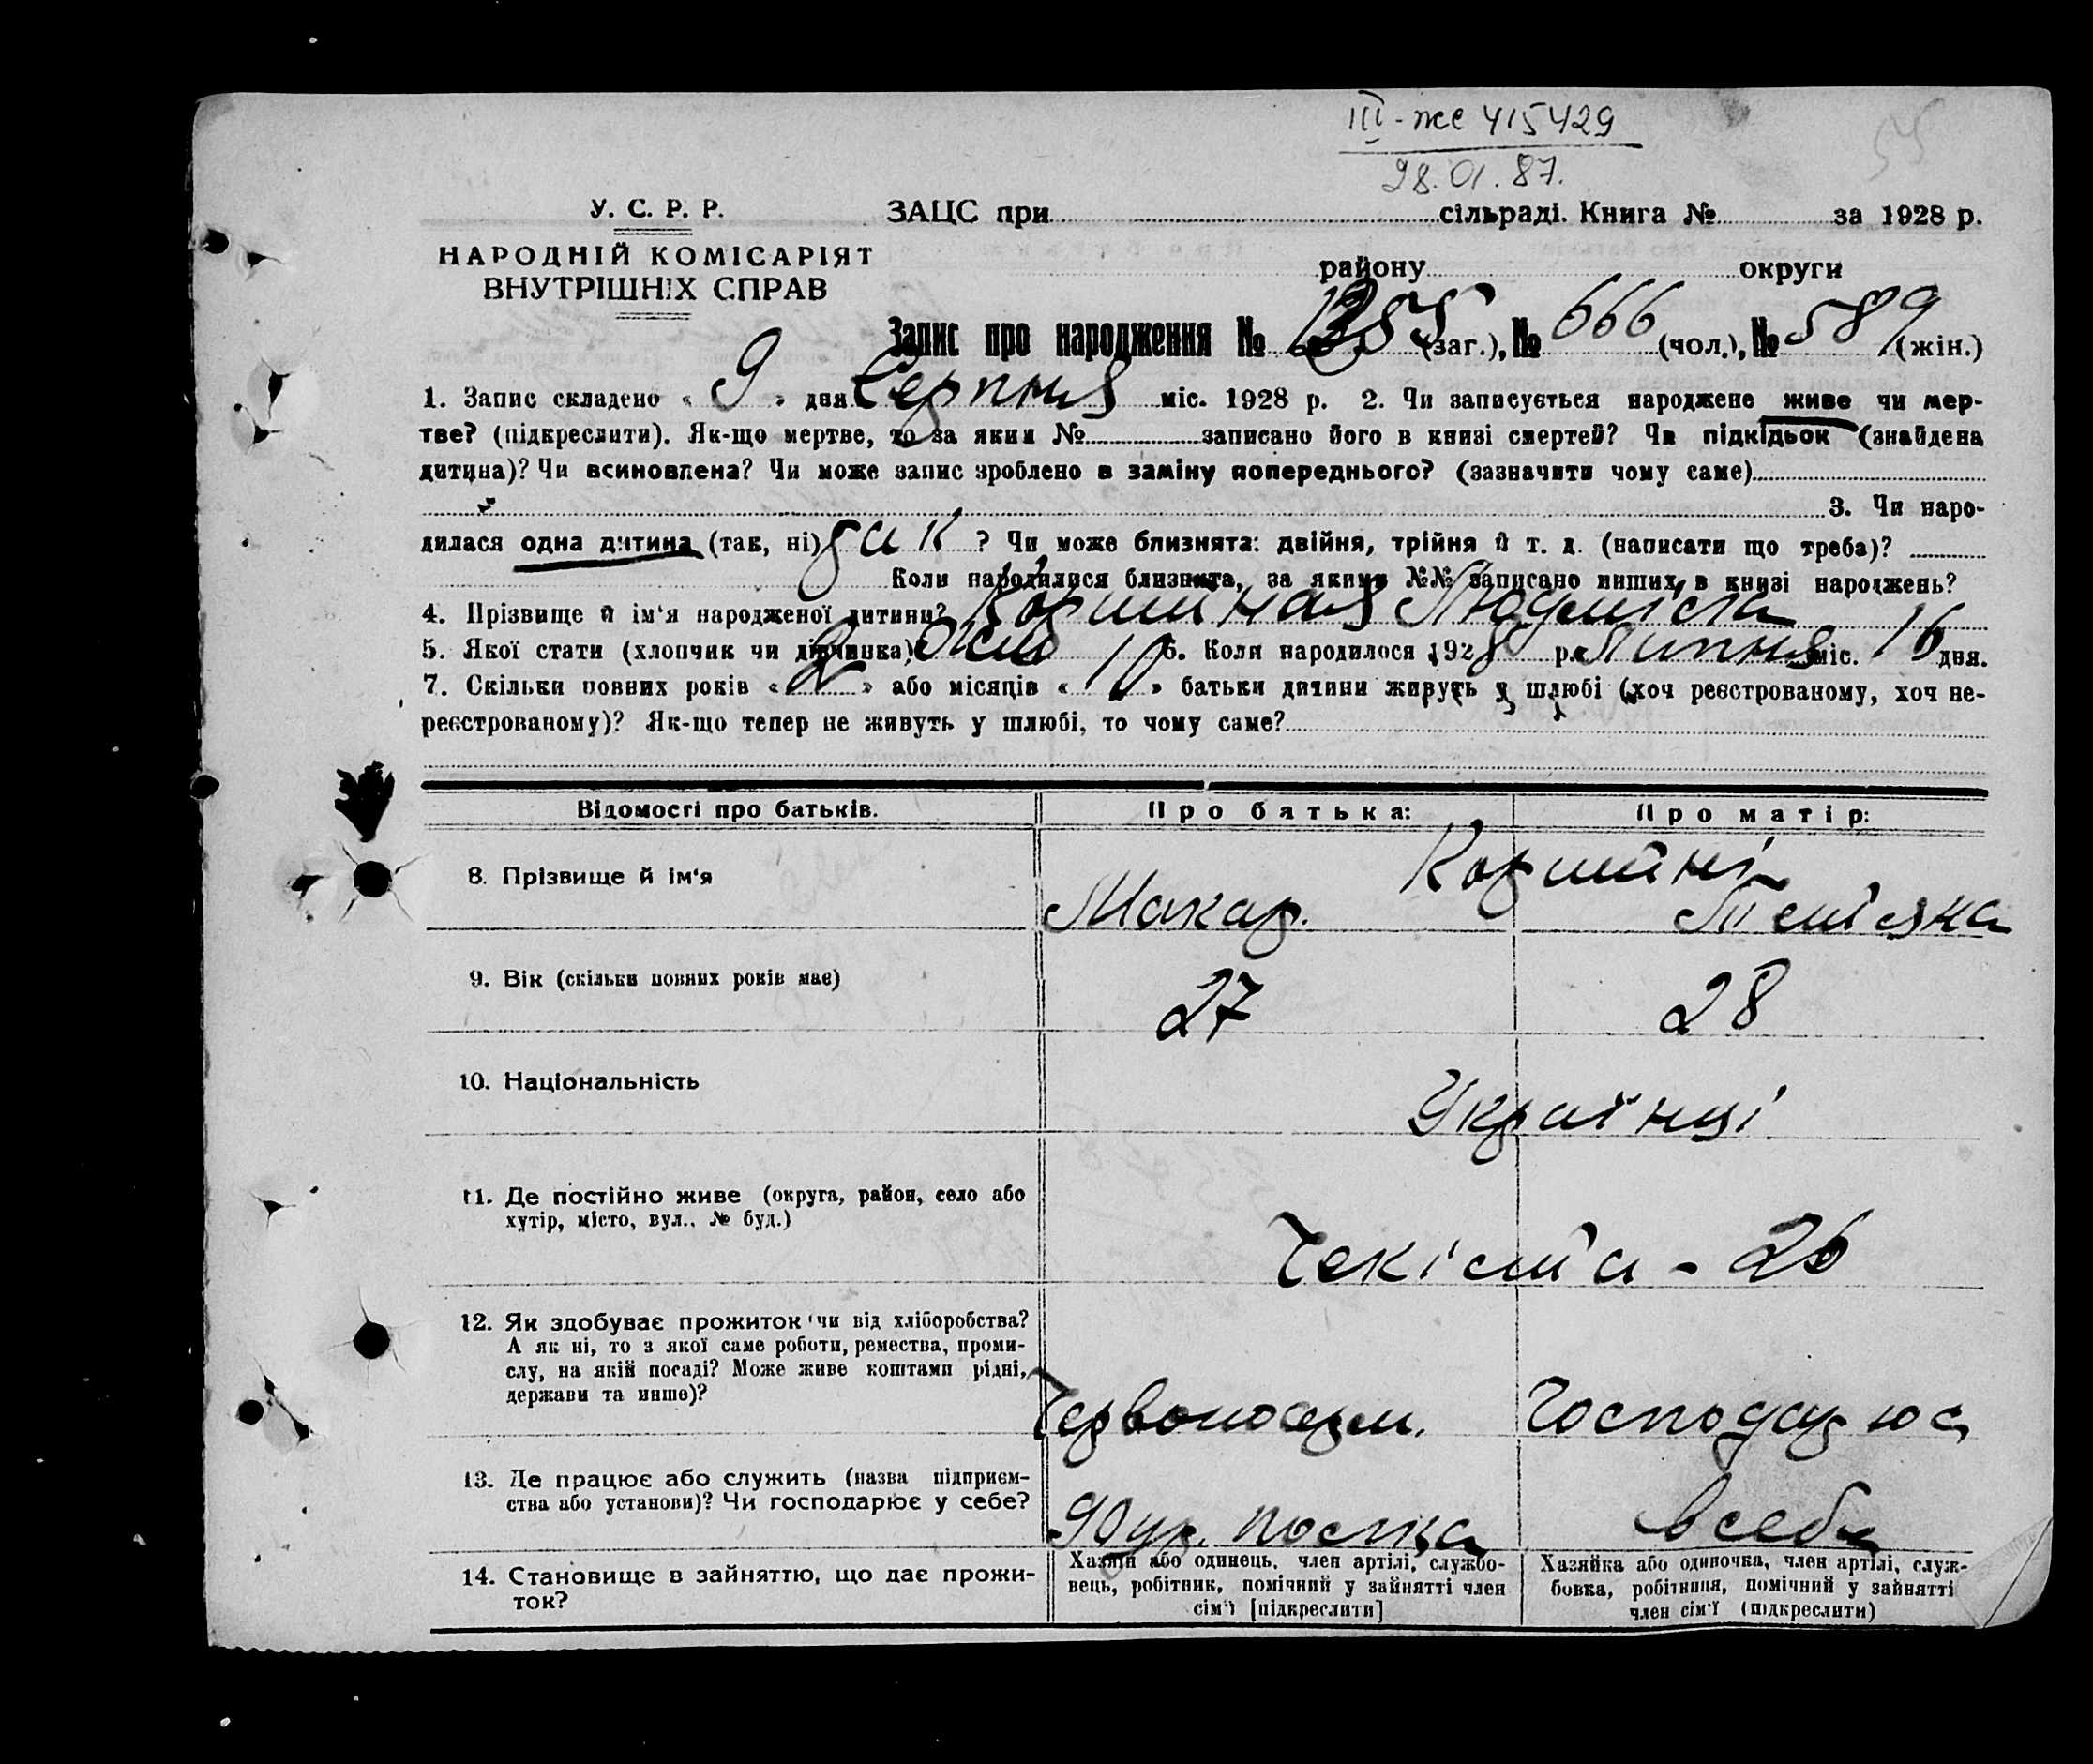 III-же 415429
28.01.87.
55
У. С. Р. Р.
ЗАЦС при сільраді. Книга № за 1928 р.
НАРОДНІЙ КОМІСАРІЯТ
ВНУТРІШНІХ СПРАВ
району округи
Запис про народження № 1255 (заг.), № 666 (чол.), № 589 (жін.)
1. Запис складено « 9 » дня Серпня міс. 1928 р. 2. Чи записується народжене живе чи мер-
тве? (підкреслити). Як-що мертве, то за яким № записано його в книзі смертей? Чи підкідьок (знайдена
дитина)? Чи всиновлена? Чи може запис зроблено в заміну попереднього? (зазначити чому саме)
3. Чи наро-
дилася одна дитина (так, ні) так ? Чи може близнята: двійня, трійня й т. д. (написати що треба)?
Коли народилися близнята, за якими №№ записано инших в книзі народжень?
4. Прізвище й ім‘я народженої дитини? Людмила
5. Якої стати (хлопчик чи дівчинка) жін 6. Коли народилося 1928 р. Липня міс. 16 дня.
7. Скільки повних років « 2 » або місяців « 10 » батьки дитини живуть у шлюбі (хоч реєстрованому, хоч не-
реєстрованому)? Як-що тепер не живуть у шлюбі, то чому саме?
Відомості про батьків. Про батька: Про матір:
8. Прізвище й ім‘я Макар. Тетяна
9. Вік (скільки повних років має) 27 28
10. Національність Українці
11. Де постійно живе (округа, район, село або
хутір, місто, вул., № буд.) Чекіста - 26
12. Як здобуває прожиток чи від хліборобства?
А як ні, то з якої саме роботи, ремества, проми-
слу, на якій посаді? Може живе коштами рідні,
держави та инше)? Червоноарм. Господарює
13. Де працює або служить (назва підприєм-
ства або установи)? Чи господарює у себе? в себе
14. Становище в зайняттю, що дає прожи-
ток?
Хазяїн або одинець, член артілі, службо-
вець, робітник, помічний у зайнятті член
сім‘ї [підкреслити]
Хазяйка або одиночка, член артілі, служ-
бовка, робітниця, помічний у зайнятті
член сім‘ї (підкреслити)